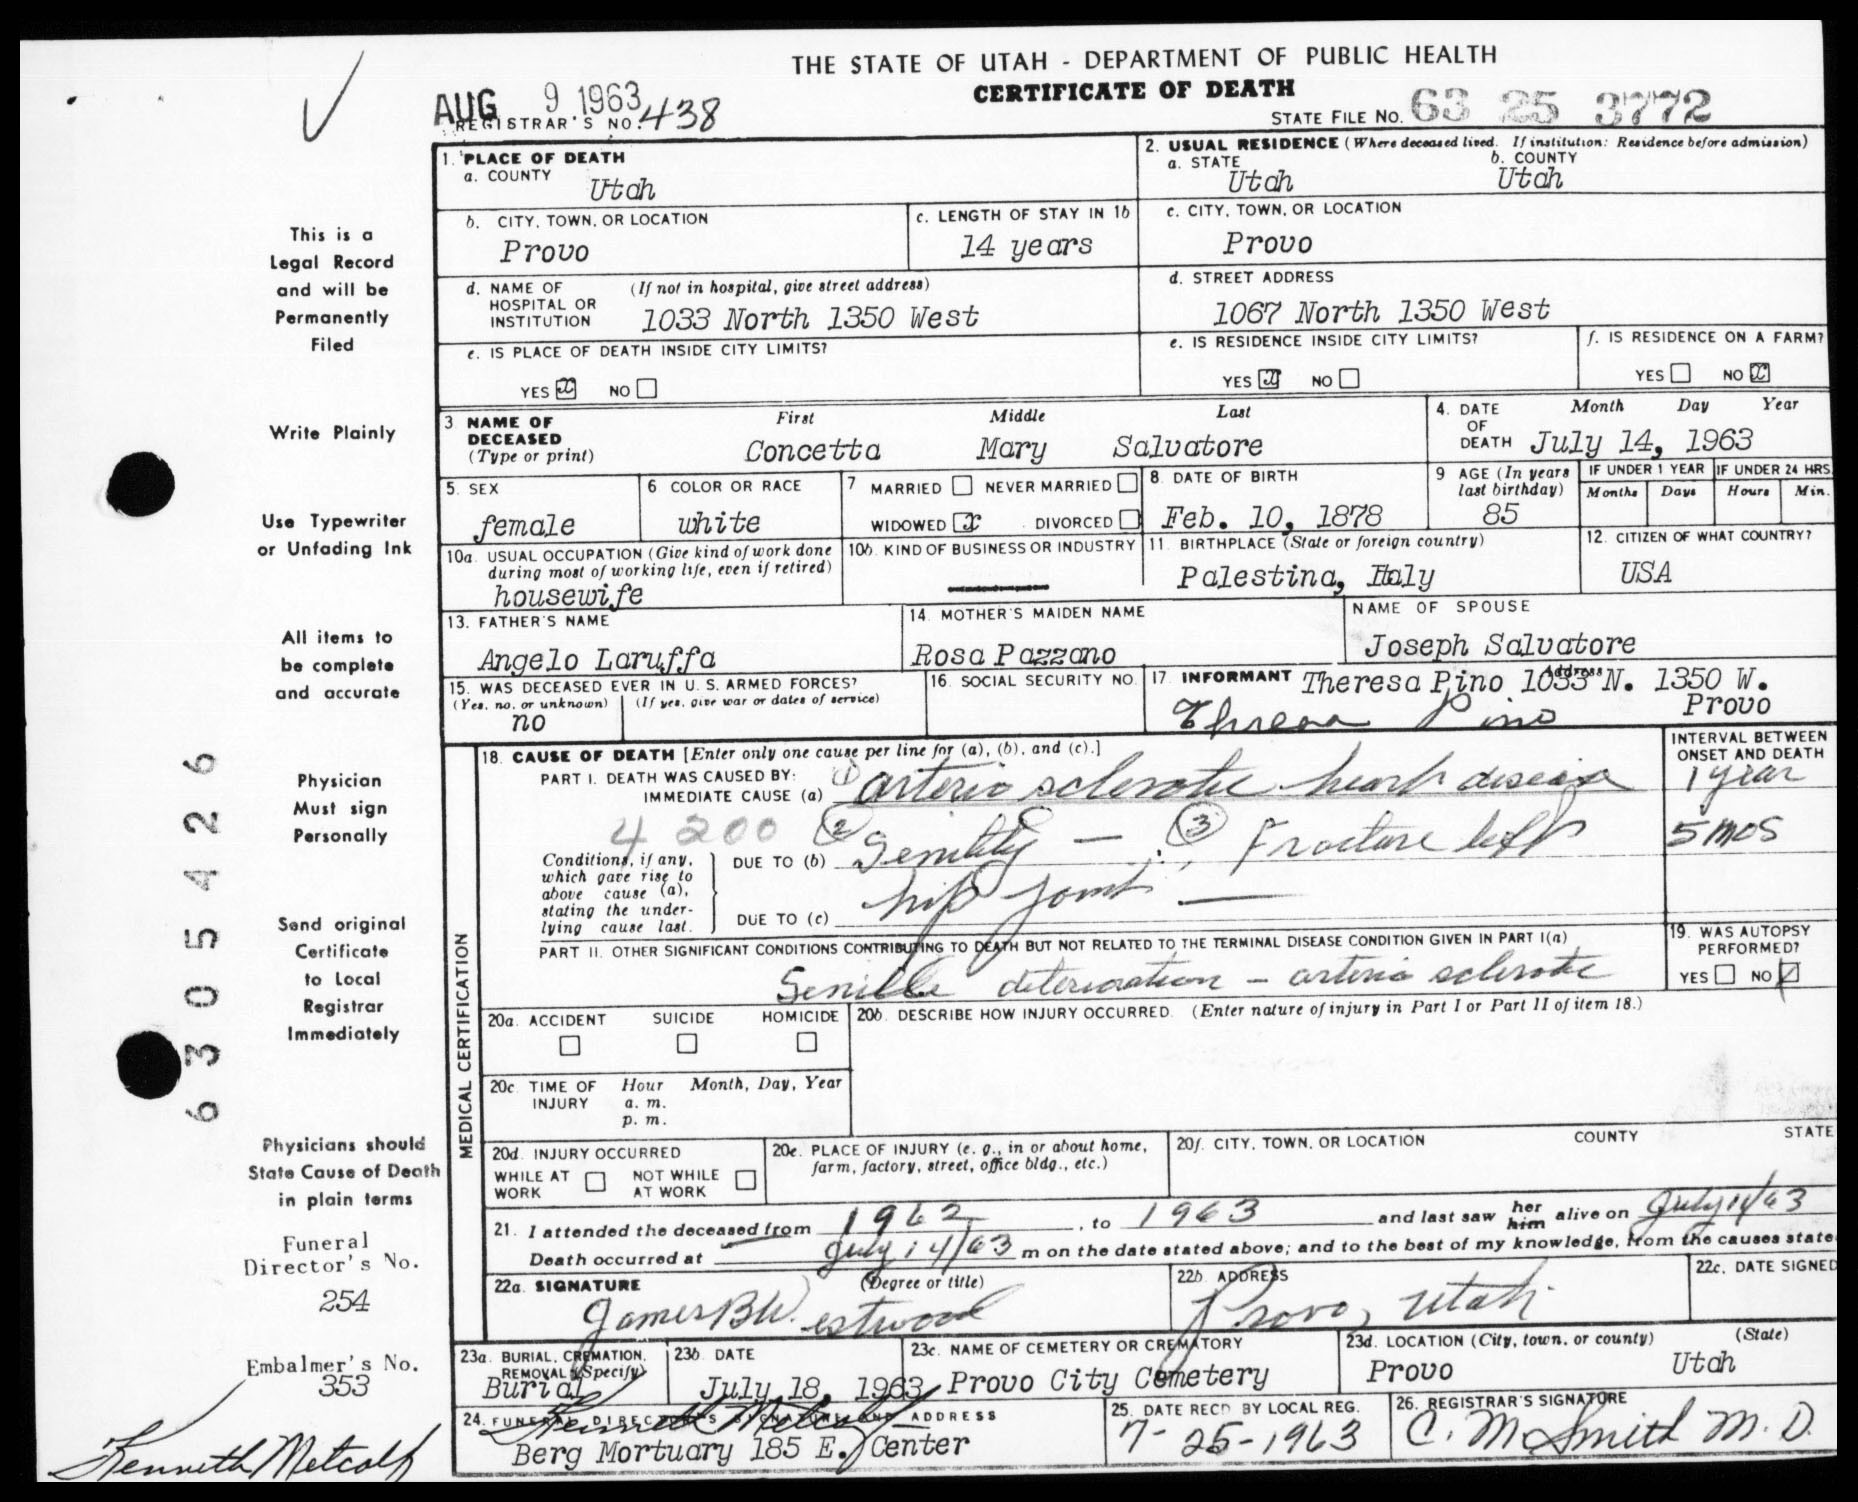 THE STATE OF UTAH - DEPARTMENT OF PUBLIC HEALTH
CERTIFICATE OF DEATH
AUG 9 1963
REGISTRAR'S NO. 438
STATE FILE NO. 63 25 3772
1. PLACE OF DEATH
a. COUNTY
Utah
2. USUAL RESIDENCE (Where deceased lived. If institution: Residence before admission)
a. STATE b. COUNTY
Utah Utah
b. CITY, TOWN, OR LOCATION
Provo
c. LENGTH OF STAY IN 1b
14 years
c. CITY, TOWN, OR LOCATION
Provo
d. NAME OF HOSPITAL OR INSTITUTION (If not in hospital, give street address)
1033 North 1350 West
d. STREET ADDRESS
1067 North 1350 West
e. IS PLACE OF DEATH INSIDE CITY LIMITS?
YES x NO
e. IS RESIDENCE INSIDE CITY LIMITS?
YES x NO
f. IS RESIDENCE ON A FARM?
YES NO x
3 NAME OF DECEASED (Type or print)
First Middle Last
Concetta Mary Salvatore
4. DATE OF DEATH Month Day Year
July 14, 1963
5. SEX
female
6 COLOR OR RACE
white
7 MARRIED NEVER MARRIED
WIDOWED x DIVORCED
8. DATE OF BIRTH
Feb. 10, 1878
9 AGE (In years last birthday)
85
IF UNDER 1 YEAR IF UNDER 24 HRS.
Months Days Hours Min.
10a. USUAL OCCUPATION (Give kind of work done during most of working life, even if retired)
housewife
10b. KIND OF BUSINESS OR INDUSTRY
11. BIRTHPLACE (State or foreign country)
Palestina, Italy
12. CITIZEN OF WHAT COUNTRY?
USA
13. FATHER'S NAME
Angelo Laruffa
14. MOTHER'S MAIDEN NAME
Rosa Pazzano
NAME OF SPOUSE
Joseph Salvatore
15. WAS DECEASED EVER IN U. S. ARMED FORCES?
(Yes, no, or unknown) (If yes, give war or dates of service)
no
16. SOCIAL SECURITY NO.
17. INFORMANT Address
Theresa Pino 1033 N. 1350 W.
Provo
Theresa Pino
MEDICAL CERTIFICATION
18. CAUSE OF DEATH [Enter only one cause per line for (a), (b), and (c).]
INTERVAL BETWEEN ONSET AND DEATH
PART I. DEATH WAS CAUSED BY:
IMMEDIATE CAUSE (a) (1) arterio sclerotic heart disease
1 year
4200
Conditions, if any, which gave rise to above cause (a), stating the underlying cause last.
DUE TO (b) (2) Senility - (3) Fracture left
5 mos
DUE TO (c) hip joint -
PART II. OTHER SIGNIFICANT CONDITIONS CONTRIBUTING TO DEATH BUT NOT RELATED TO THE TERMINAL DISEASE CONDITION GIVEN IN PART I(a)
Senile deterioration - arterio sclerotic
19. WAS AUTOPSY PERFORMED?
YES NO
20a. ACCIDENT SUICIDE HOMICIDE
20b. DESCRIBE HOW INJURY OCCURRED. (Enter nature of injury in Part I or Part II of item 18.)
20c. TIME OF INJURY Hour Month, Day, Year
a. m.
p. m.
20d. INJURY OCCURRED
WHILE AT WORK NOT WHILE AT WORK
20e. PLACE OF INJURY (e. g., in or about home, farm, factory, street, office bldg., etc.)
20f. CITY, TOWN, OR LOCATION COUNTY STATE
21. I attended the deceased from 1962, to 1963 and last saw her him alive on July 14/63
Death occurred at July 14/63 m on the date stated above; and to the best of my knowledge, from the causes state
22a. SIGNATURE (Degree or title)
James B W. estwood
22b. ADDRESS
Provo, Utah
22c. DATE SIGNED
23a. BURIAL, CREMATION, REMOVAL (Specify)
Burial
23b. DATE
July 18, 1963
23c. NAME OF CEMETERY OR CREMATORY
Provo City Cemetery
23d. LOCATION (City, town, or county) (State)
Provo Utah
24. FUNERAL DIRECTOR'S SIGNATURE AND ADDRESS
Kenneth Metcalf
Berg Mortuary 185 E. Center
25. DATE RECD BY LOCAL REG.
7-25-1963
26. REGISTRAR'S SIGNATURE
C. M Smith M. D.
This is a
Legal Record
and will be
Permanently
Filed
Write Plainly
Use Typewriter
or Unfading Ink
All items to
be complete
and accurate
Physician
Must sign
Personally
Send original
Certificate
to Local
Registrar
Immediately
Physicians should
State Cause of Death
in plain terms
Funeral
Director's No.
254
Embalmer's No.
353
Kenneth Metcalf
6305426